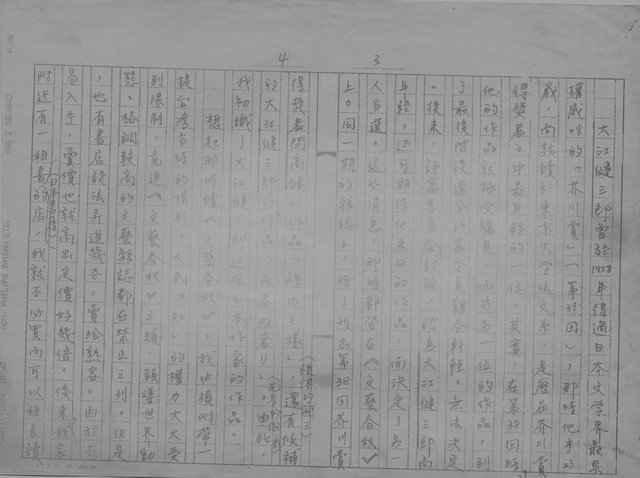 大江健三郎曾經1958年得過日本文學界最具
權威性的「芥川賞」(第39回),那時他才23
歲,尚就讀於東京大學法文系,是歷屆芥川賞
得獎者之中最年輕的一位。其實,在第38回時
他的作品就極受矚目,而與另一位的作品,到
了最後階段還令評審委員難分軒輊。無法決定
。後來,評審委員會討論,認為大江健三郎尚
年輕,還可期待他來日的作品,而決定了另一
人當選。這些消息,那時都登在《文藝春秋》
上。同一期的雜誌上,除了刊出第38回芥川賞
3
4
得獎者開高健的作品「裸の王様」,還有候補
(裸體的國王)
的大江健三郎的作品「死者の奢り」。由此,
(死者的傲)
我初識了大江健三郎這位日本作家的作品。
想起那時讀《文藝春秋》,我必須附帶一
提台灣當時的情形,人民「知」的權力大大受
到限制,竟連《文藝春秋》之類,報導世界動
態、格調較高的文藝雜誌都在禁止之列。但是
,也有書店設法弄進幾本,賣給熟客。由於不
易入手,賣價也就高出定價好幾倍。後來我家
附近有一租書的店,我就不必買而可以租來讀